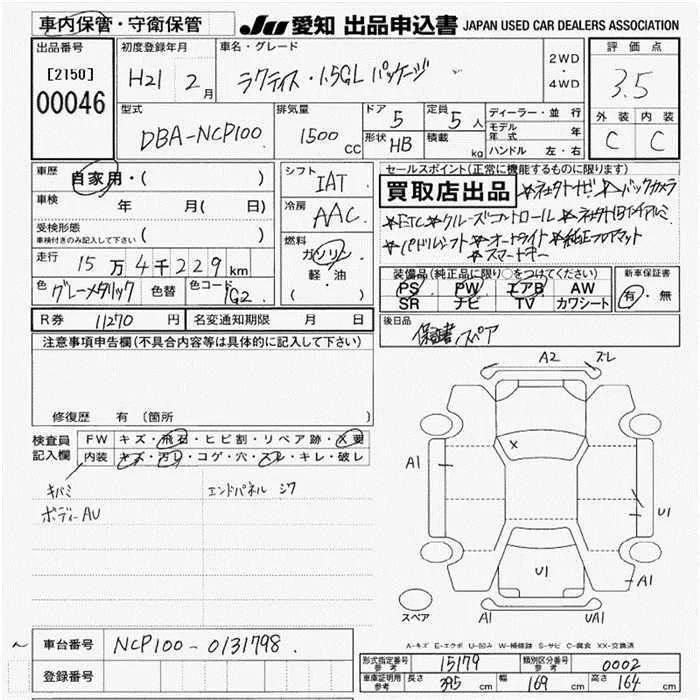 車内保管・守衛保管 JU 愛知 出品申込書 JAPAN USED CAR DEALERS ASSOCIATION
出品番号 初度登録年月 車名・グレード 2WD ・ 4WD 評価点
[2150] H21 2月 ラクティス・1.5GL パッケージ 3.5
00046
型式 排気量 ドア 定員 ディーラー・並行 外装 内装
DBA-NCP100 1500 CC 5 5人 モデル年式 年 C C
形状 HB 積載 kg ハンドル 左・右
車歴 自家用・( ) シフト IAT セールスポイント(正常に機能するものに限ります)
車検 年 月( 日) 冷房 AAC 買取店出品 バックカメラ
受検形態 車検付きのみ記入して下さい ( ) ETC クルーズコントロール
燃料 ガソリン・軽・油 ( ) パドルシフト オートライト 純正フロアマット
スマートキー
走行 15万4千229km 装備品(純正品に限り○をつけてください) 新車保証書
色 グレーメタリック 色替 色コード 1G2 PS PW エアB AW 有・無
SR ナビ TV カワシート
R券 11270 円 名変通知期限 月 日 後日品
注意事項申告欄(不具合内容等は具体的に記入して下さい) 保証書 スペア
A2 ズレ
修復歴 有 (箇所 )
検査員記入欄 FW キズ・飛石・ヒビ割・リペア跡・X要
内装 キズ・汚レ・コゲ・穴・スレ・キレ・破レ
X
A1
キバミ エンドパネル シワ
ボディーAU
U1
U1
A1
スペア A1 UA1
A-キズ E-エクボ U-凹み W-補修跡 S-サビ C-腐食 XX-交換済
車台番号 NCP100-0131798
形式指定番号 参考 15179 類別区分番号 参考 0002
登録番号
車庫証明用 参考 長さ 395 cm 幅 169 cm 高さ 164 cm